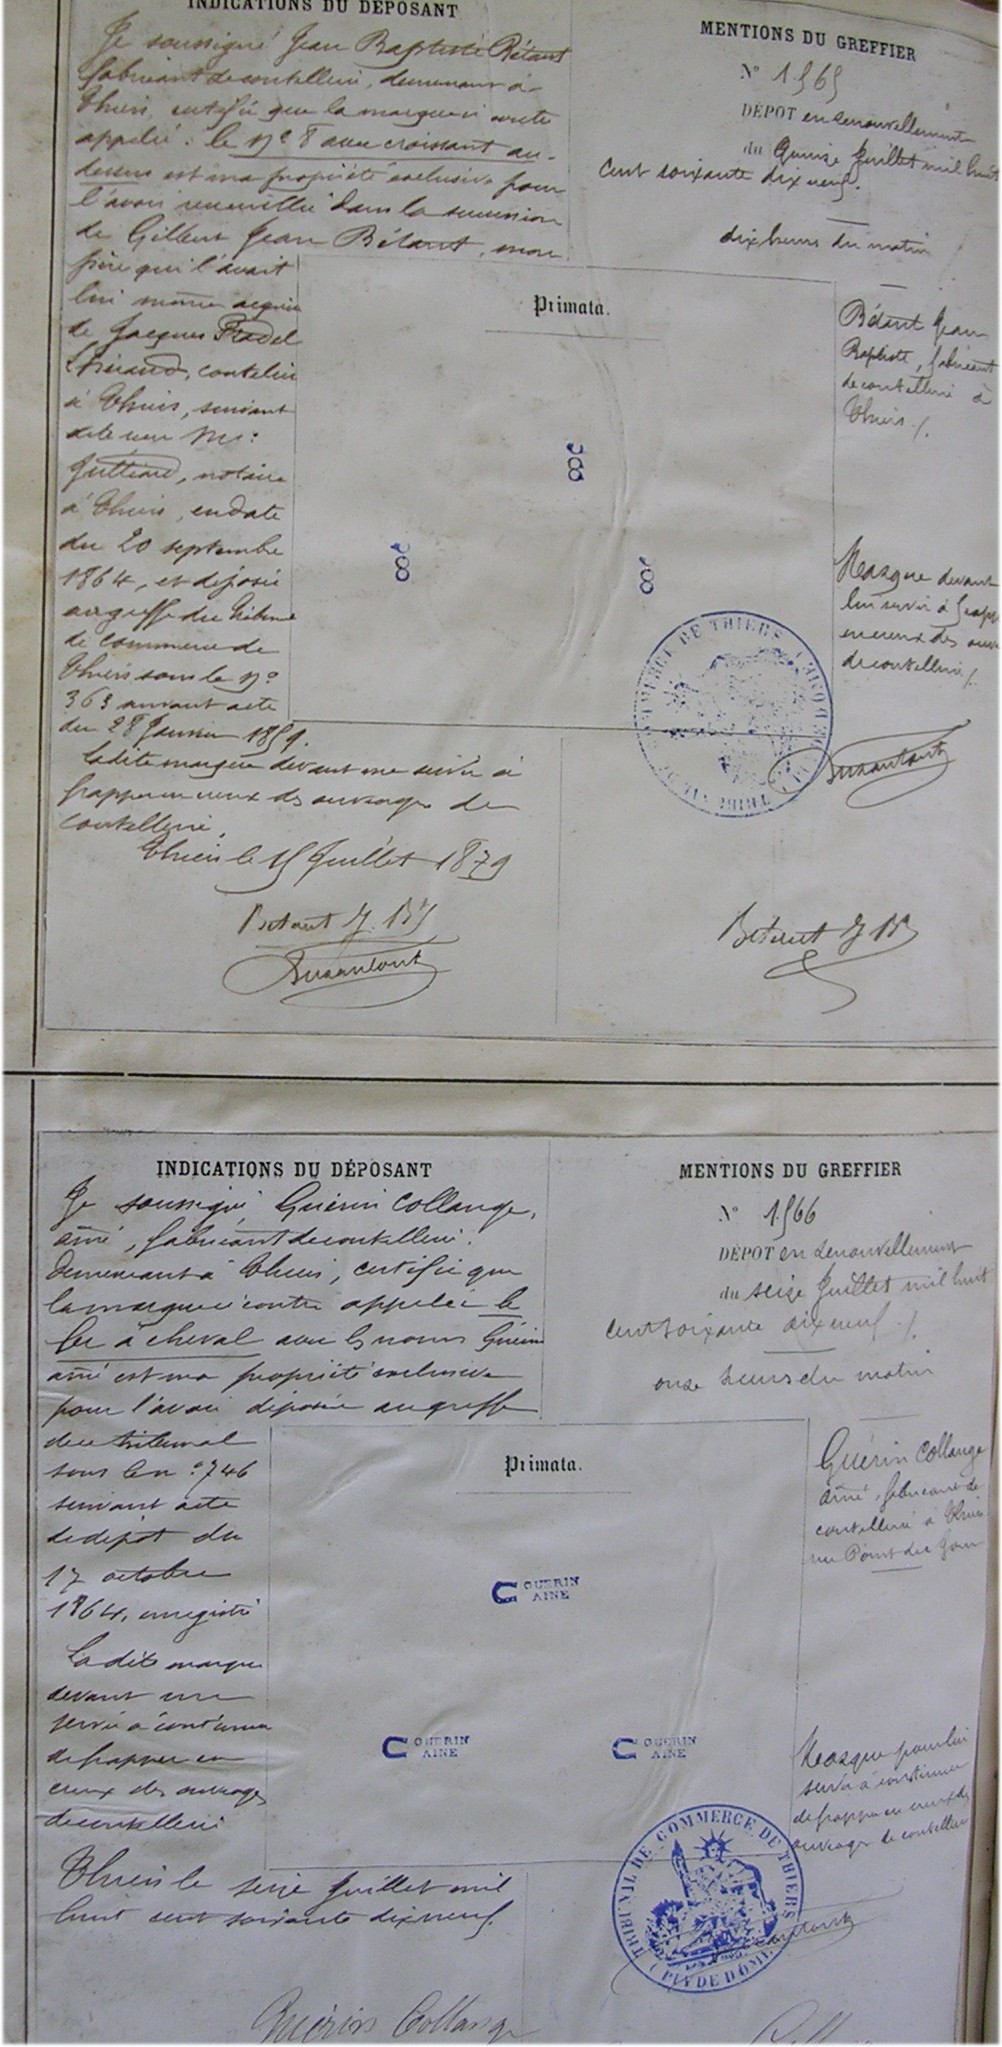 INDICATIONS DU DÉPOSANT
Je soussigné Jean Baptiste Bétant
fabricant de coutellerie, demeurant à
Thiers, certifie que la marque ci contre
appelée : le N° 8 avec croissant au-
dessus est ma propriété exclusive pour
l'avoir recueillie dans la succession
de Gilbert Jean Bétant, mon
père qui l'avait
lui même acquise
de Jacques Fradel
coutelier
à Thiers, suivant
acte reçu Me
notaire
à Thiers, en date
du 20 septembre
1864, et déposée
au greffe du tribunal
de commerce de
Thiers sous le N°
363 suivant acte
du 28 Janvier 1859.
Ladite marque devant me servir à
frapper en creux des ouvrages de
coutellerie.
Thiers le 15 Juillet 1879
Betant J. Bte
MENTIONS DU GREFFIER
N° 1565
DÉPOT en renouvellement
du Quinze Juillet mil huit
cent soixante dix neuf.
dix heures du matin
Primata.
Bétant Jean
Baptiste, fabricant
de coutellerie à
Thiers.
Marque devant
lui servir à frapper
en creux des ouvrages
de coutellerie
8
8
8
Betant J Bte
INDICATIONS DU DÉPOSANT
Je soussigné Guérin Collange,
ainé, fabricant de coutellerie,
demeurant à Thiers, certifie que
la marque ci contre appelée le
fer à cheval avec les noms Guérin
ainé est ma propriété exclusive
pour l'avoir déposée au greffe
du tribunal
sous le n° 746
suivant acte
de dépôt du
17 octobre
1864, enregistré
La dite marque
devant me
servir à continuer
de frapper en
creux des ouvrages
de coutellerie
Thiers le seize Juillet mil
huit cent soixante dix neuf.
Guérin Collange
MENTIONS DU GREFFIER
N° 1566
DÉPOT en renouvellement
du seize Juillet mil huit
cent soixante dix neuf.
onze heures du matin
Primata.
Guérin Collange
ainé, fabricant de
coutellerie à Thiers
rue
GUERIN
AINE
GUERIN
AINE
GUERIN
AINE
Marque pour lui
servir à continuer
de frapper en creux des
ouvrages de coutellerie
TRIBUNAL DE COMMERCE DE THIERS
(PUY DE DÔME)